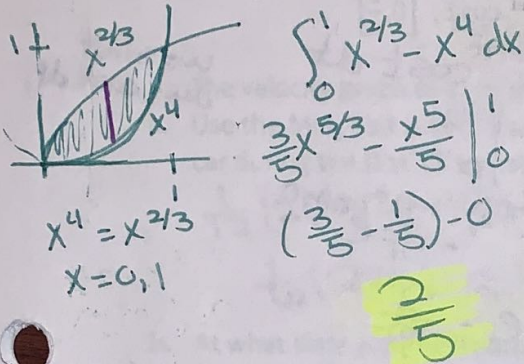 1
x^{2/3}
x^4
1
x^4 = x^{2/3}
x = 0, 1
∫_0^1 x^{2/3} - x^4 dx
\frac{3}{5}x^{5/3} - \frac{x^5}{5} |_0^1
(\frac{3}{5} - \frac{1}{5}) - 0
\frac{2}{5}